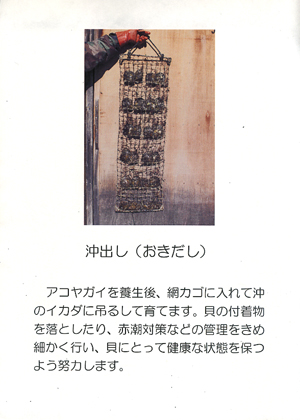 沖出し（おきだし）
アコヤガイを養生後、網カゴに入れて沖
のイカダに吊るして育てます。貝の付着物
を落としたり、赤潮対策などの管理をきめ
細かく行い、貝にとって健康な状態を保つ
よう努力します。